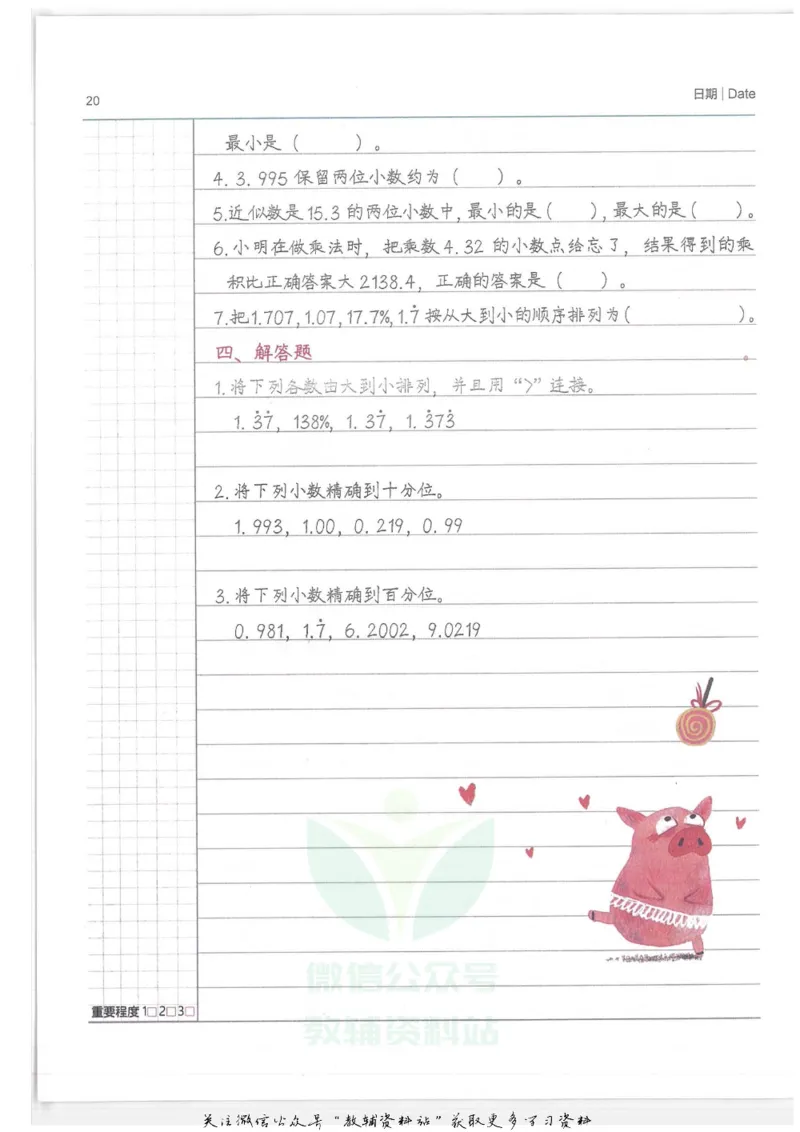 20
日期 | Date
最小是（　　）。
4. 3. 995 保留两位小数约为（　　）。
5.近似数是15.3 的两位小数中,最小的是（　　）,最大的是（　　）。
6.小明在做乘法时，把乘数4.32 的小数点给忘了，结果得到的乘
积比正确答案大2138.4，正确的答案是（　　）。
7.把1.707,1.07,17.7%,1.7̇ 按从大到小的顺序排列为（　　　　）。
四、解答题
1.将下列各数由大到小排列，并且用“>”连接。
1. 3̇7̇, 138%, 1. 37̇, 1. 3̇73̇
2.将下列小数精确到十分位。
1. 993, 1.00, 0. 219, 0. 99
3.将下列小数精确到百分位。
0. 981, 1.7̇, 6. 2002, 9.0219
微信公众号
教辅资料站
重要程度 1□2□3□
关注微信公众号“教辅资料站”获取更多学习资料